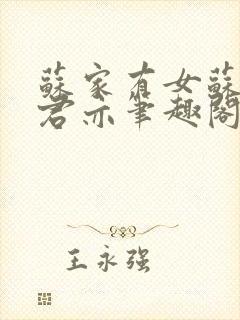 蘇家有女蘇
君亦筆趣閣
王永强